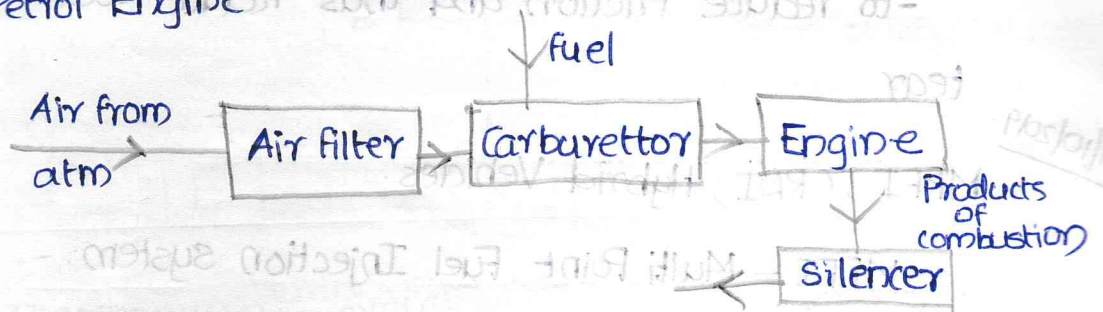 Petrol Engine
fuel
Air from
atm
Air filter
Carburettor
Engine
Products
of
combustion
Silencer